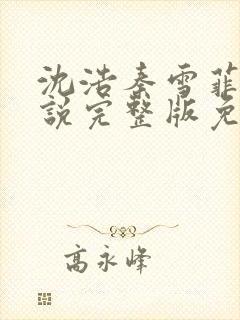 沈浩秦雪菲
說完整版免
高永峰